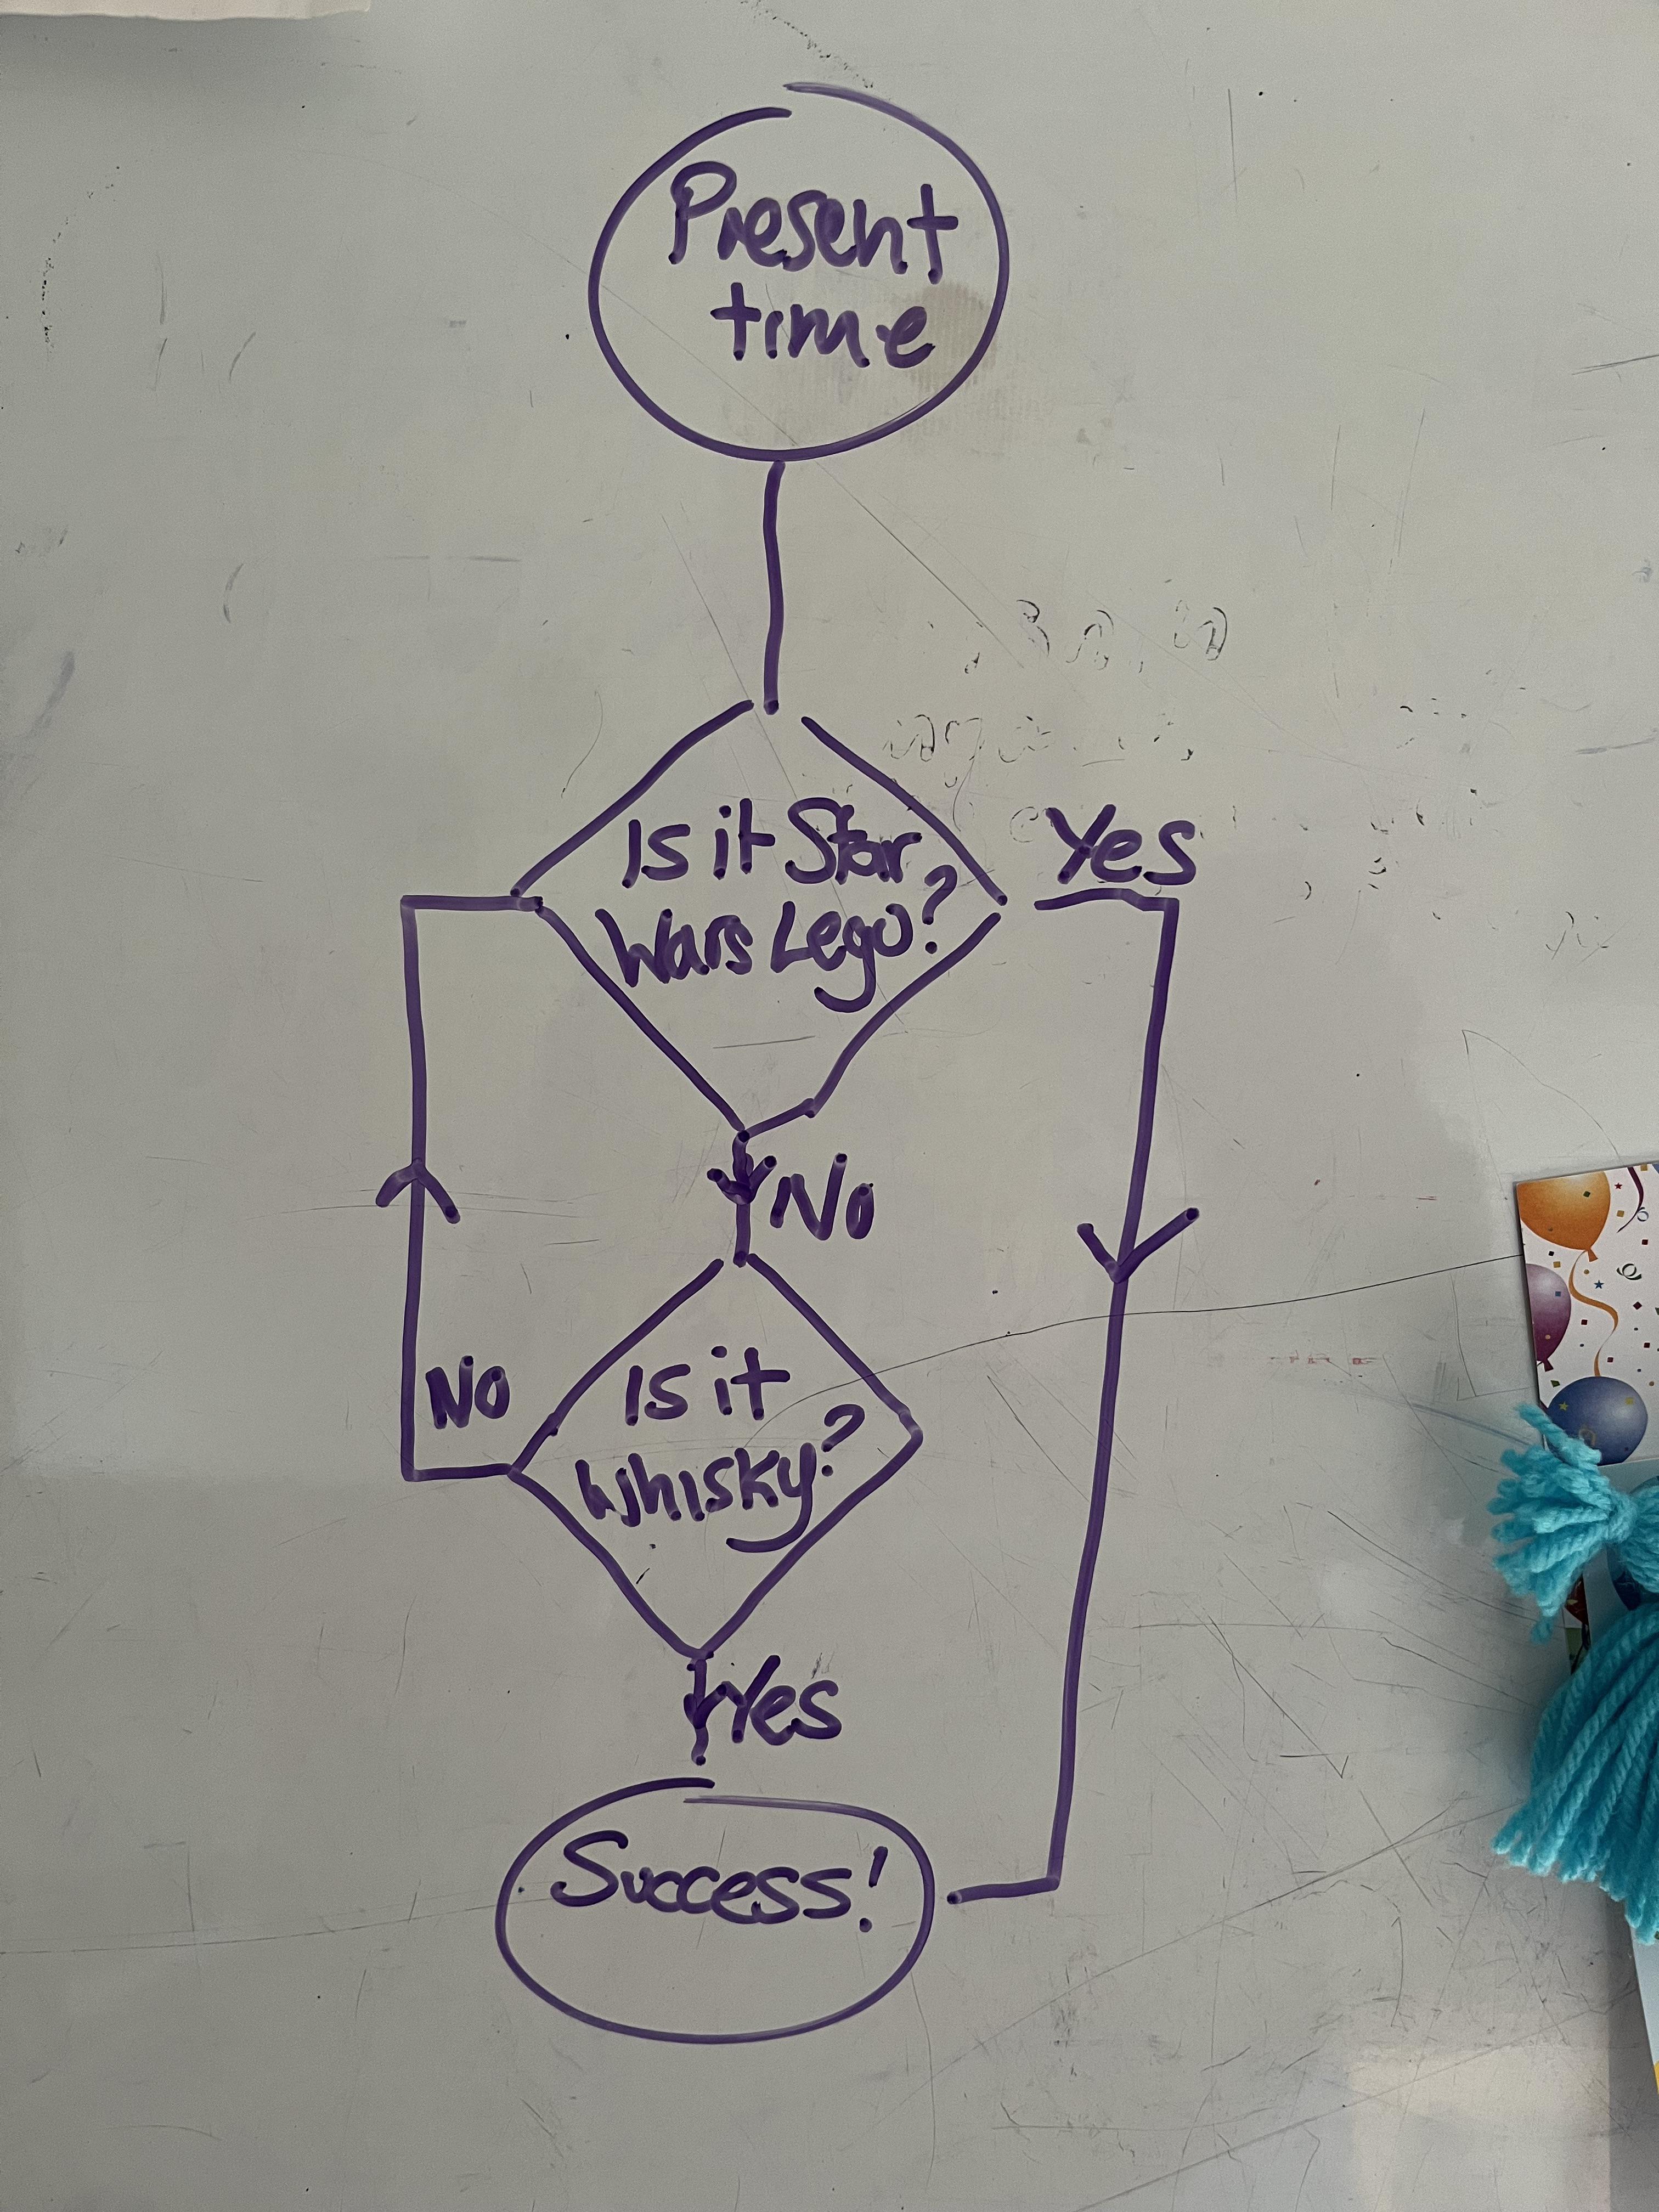 Present
time
Is it Star
Wars Lego?
Yes
No
Is it
Whisky?
No
Yes
Success!